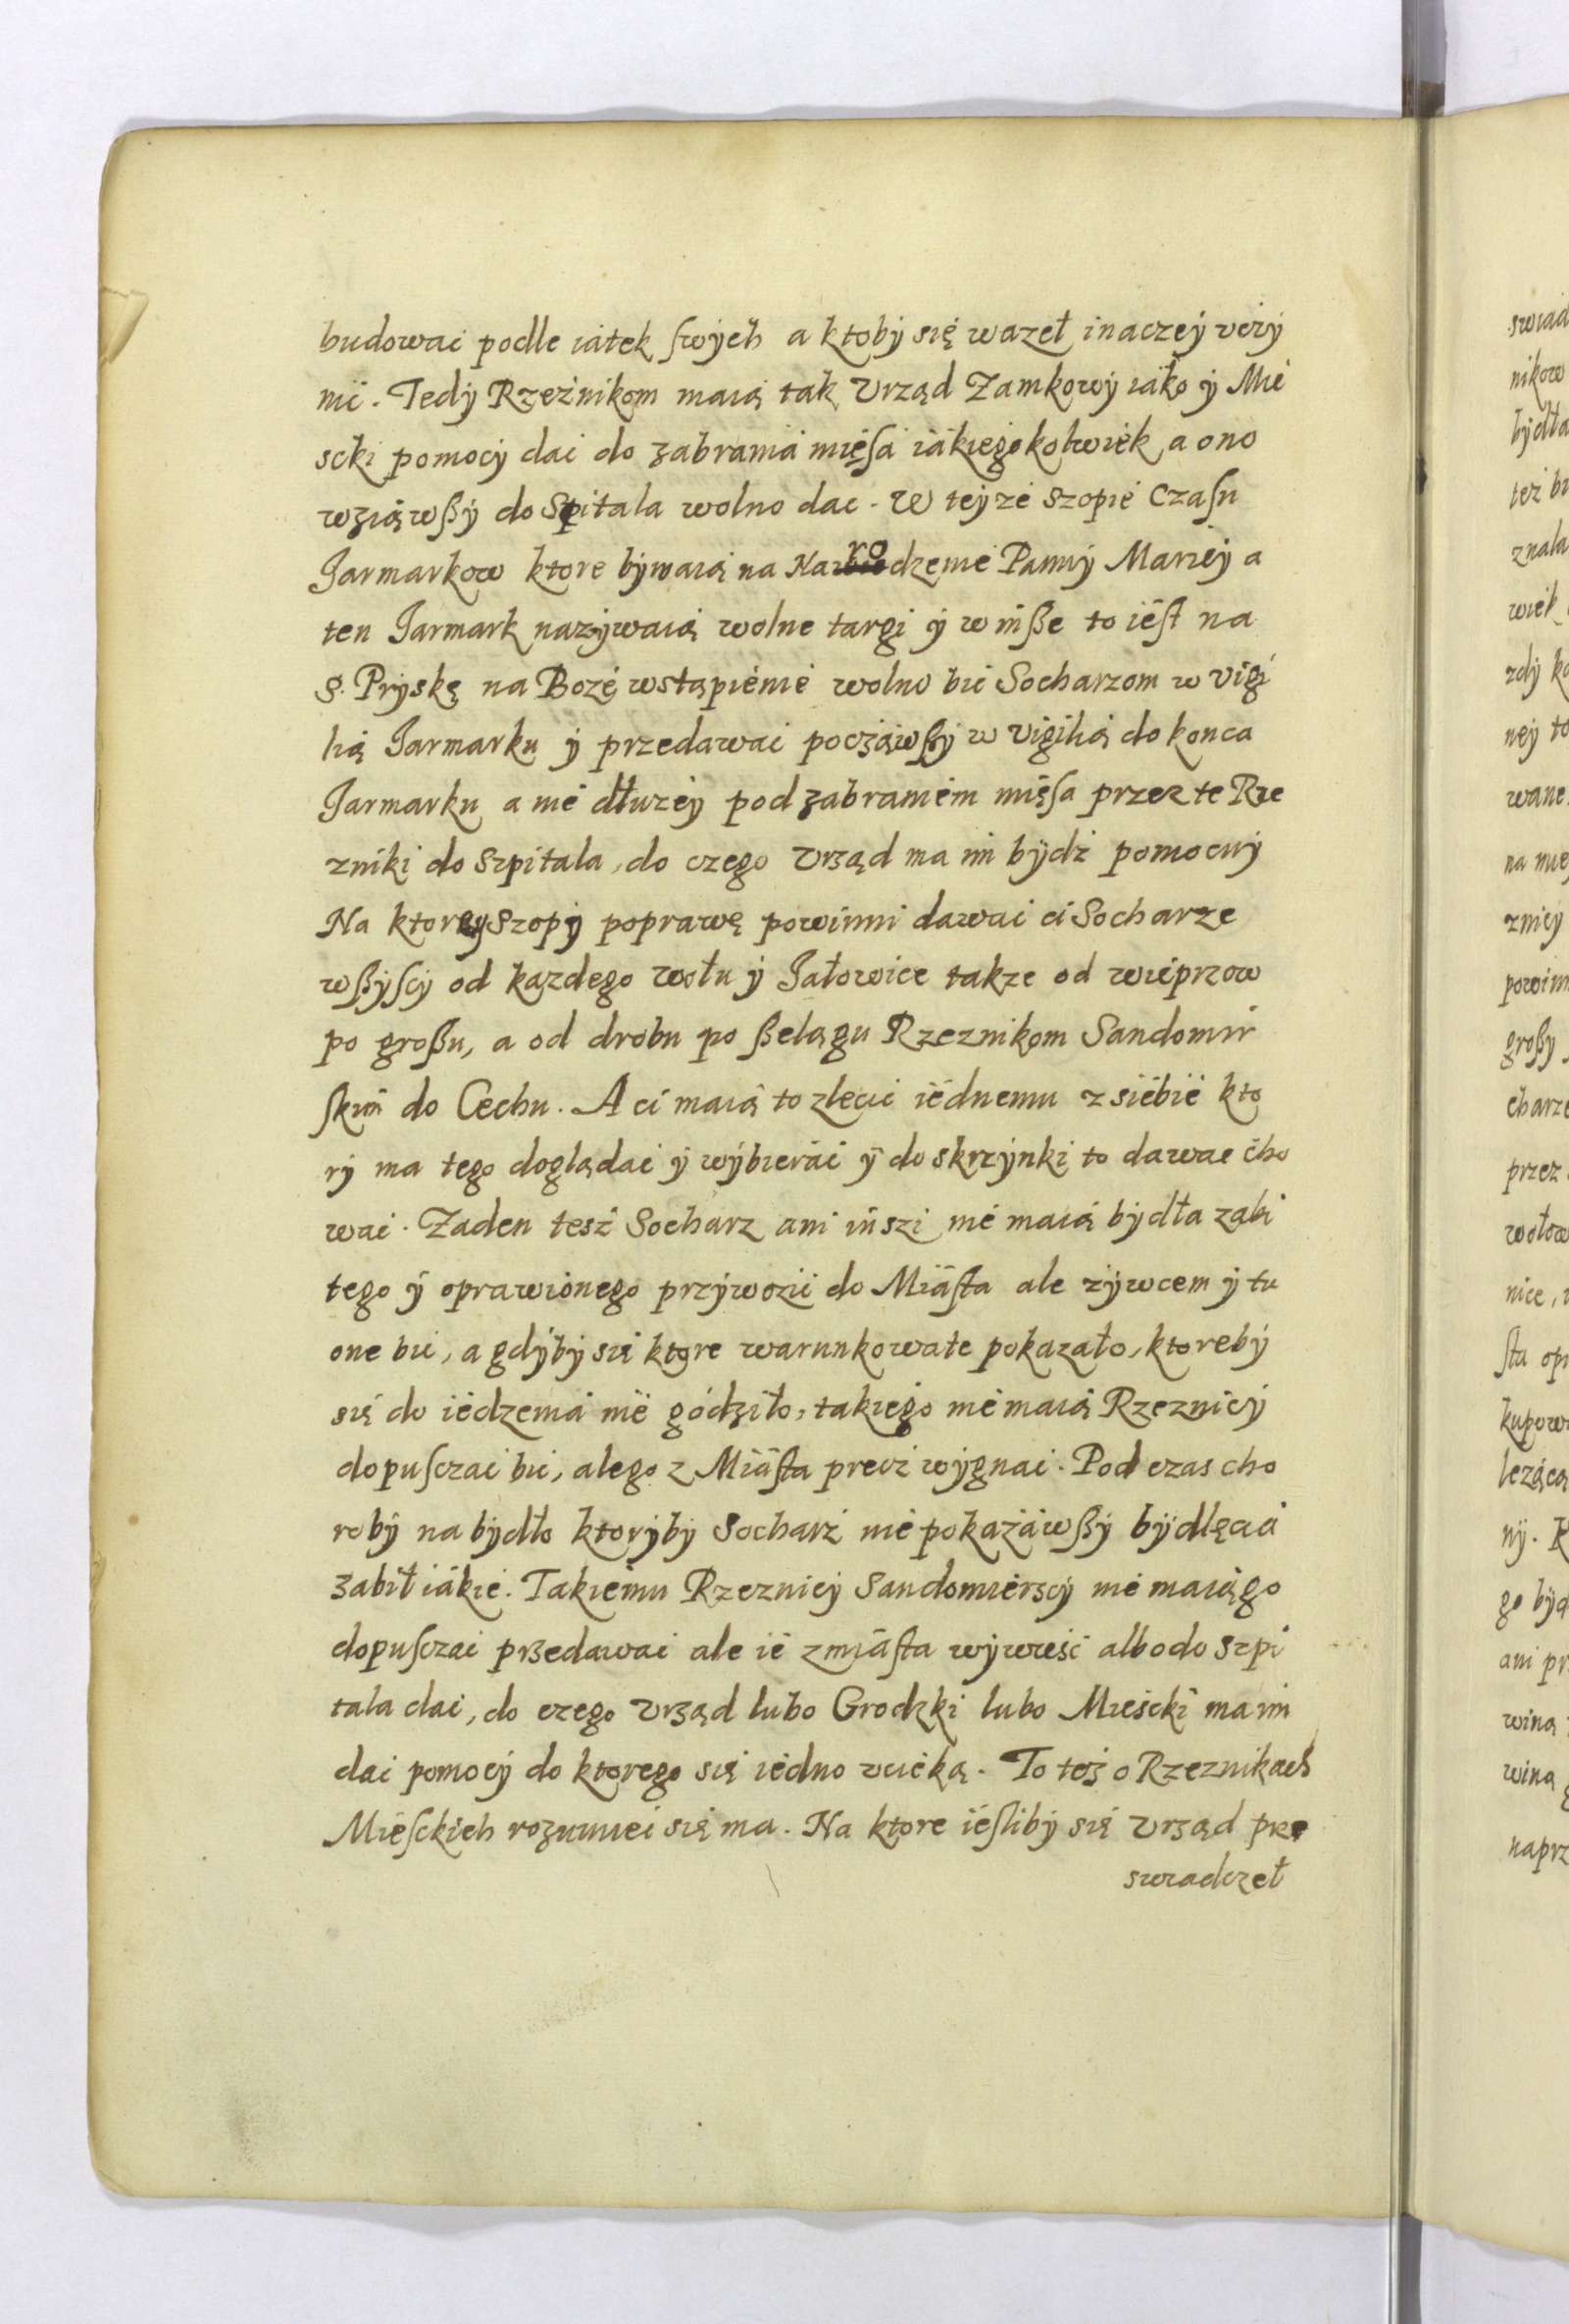 budować podle iatek swych a ktoby się wazeł inaczey vczy
nić. Tedy Rzeźnikom maią tak Vrząd Zamkowy iáko y Mie
scki pomocy dać do zabrania mięsa iákiegokolwiek a ono
wziąwszy do Spitala wolno dac. W teyze szopie czasu
Jarmarkow ktore bywaią na Narodzenie Panny Mariey a
ten Jarmark nazywaią wolne targi y w insze to iest na
S. Pryskę na Bozę wstąpienie wolno bić Socharzom w vigi
lią Jarmarku y przedawać począwszy w vigilią do konca
Jarmarku a nie dłuzey pod zabraniem mięsa przez te Rze
zniki do szpitala, do czego Vrząd ma im bydź pomocny
Na ktorey szopy poprawę powinni dawać ci Socharze
wszyscy od kazdego wołu y Jałowice takze od wieprzow
po groszu, a od drobu po szelągu Rzeznikom Sandomir
skim do Cechu. A ci maią to zlecić iednemu z siebie kto
ry ma tego doglądać y wybierać y do skrzynki to dawac cho
wać. Zaden tesz Socharz ani inszi nie maią bydła zabi
tego y oprawionego przywozić do Miásta ale zywcem y tu
one bić, a gdyby się ktore warunkowate pokazało, ktoreby
się do iedzenia nie godziło, takiego nie maią Rzeznicy
dopusczać bić, ale go z Miásta precz wygnać. Pod czas cho
roby na bydło ktoryby Socharz nie pokazáwszy bydlęcia
zabił iákie. Takiemu Rzeznicy Sandomierscy nie maią go
dopusczać przedawać ale ie z miásta wywieść albo do szpi
tala dać, do czego Vrząd lubo Grodzki lubo Mieścki ma im
dać pomocy do ktorego się iedno vcieką. To tez o Rzeznikach
Miesckich rozumieć się ma. Na ktore iesliby się Vrząd prze
swiadczeł
swiad
nikow
bydła
tez bi
znala
wiek
zdy ka
ney to
wane
znicy
powinn
groszy
charze
przez
wołow
nice,
sta opr
kupow
lezącą
ny. K
go byd
ani pr
winą
winą
naprz